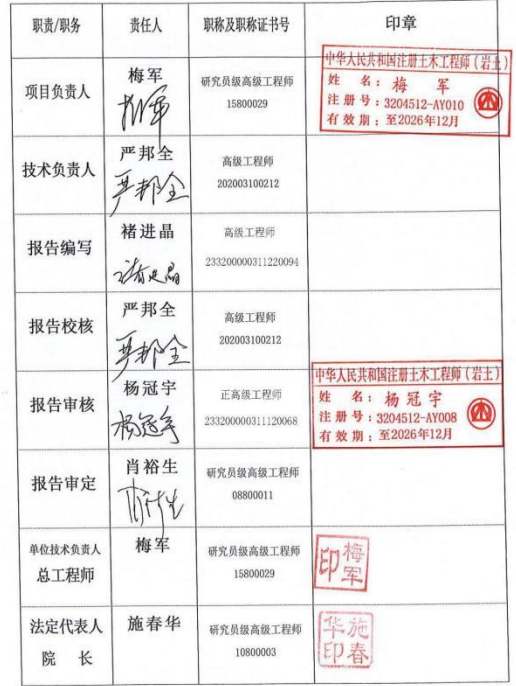 职责/职务 责任人 职称及职称证书号 印章
项目负责人 梅军 研究员级高级工程师
15800029
梅军
中华人民共和国注册土木工程师(岩土)
姓 名:梅 军
注册号:3204512-AY010
有效期:至2026年12月
技术负责人 严邦全 高级工程师
202003100212
严邦全
报告编写 褚进晶 高级工程师
233200000311220094
褚进晶
报告校核 严邦全 高级工程师
202003100212
严邦全
报告审核 杨冠宇 正高级工程师
233200000311120068
杨冠宇
中华人民共和国注册土木工程师(岩土)
姓 名:杨冠宇
注册号:3204512-AY008
有效期:至2026年12月
报告审定 肖裕生 研究员级高级工程师
08800011
肖裕生
单位技术负责人 梅军 研究员级高级工程师
总工程师 15800029
梅军印
法定代表人 施春华 研究员级高级工程师
院 长 10800003
施春华印